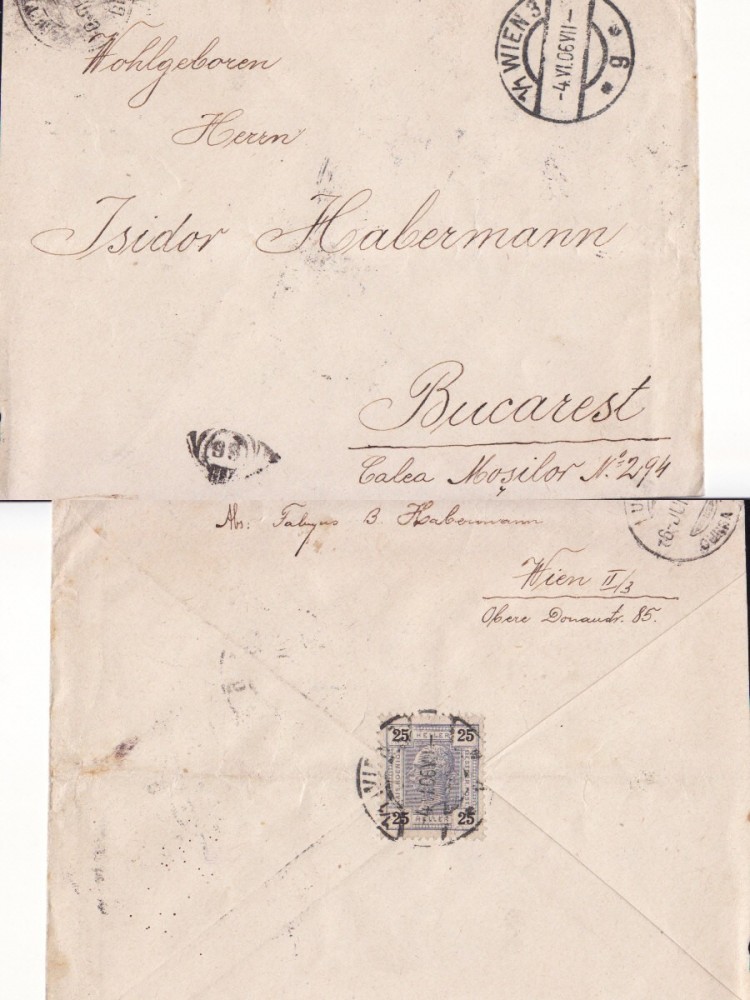 Wohlgeboren
Herrn
Isidor Habermann
Bucarest
Calea Moșilor Nº 294
1/1 WIEN 3
-4.VI.06 VII-
* 9 *
98
Abs: B. Habermann
Wien II/3
Obere Donaustr. 85.
25 25
HELLER
25 25
HELLER